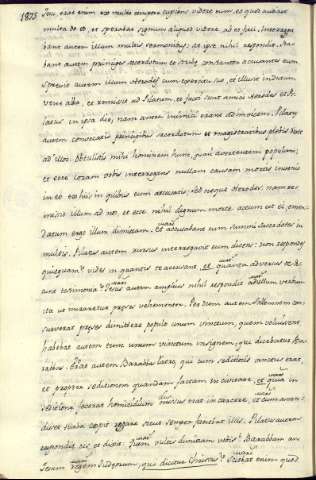 1875
Jesu, erat enim ex multo tempore cupiens videre eum, eo quod audiret
multa de eo, et sperabat signum aliquod videre ab eo fieri. Interroga-
bat autem illum multis sermonibus; at ipse nihil respondit. Sta-
bant autem principes sacerdotum et scribe constanter accusantes eum
sprevit autem illum Herodes cum exercitu suo, et illusit indutum
veste alba, et remisit ad Pilatum, et facti sunt amici Herodes et Pi-
latus in ipsa die, nam antea inimici erant ad invicem. Pilatus
autem convocatis principibus sacerdotum et magistratibus plebis dixit
ad illos: Obtulistis mihi hominem hunc, quasi avertentem populum;
et ecce coram vobis interrogans nullam causam mortis invenio
in eo ex his in quibus eum accusatis; sed neque Herodes: nam re-
missit illum ad nos, et ecce nihil dignum morte actum est ei, emen-
datum ergo illum dimittam. Et accusabant eum summi sacerdotes in
multis. Pilatus autem rursus interrogavit eum dicens: non respondes
quicquam? vides in quantis te accusant, et adversus te di-
cunt testimonia? Jesus autem amplius nihil respondit ad ullum verbum
ita ut miraretur preses vehementer. Per diem autem solemnem con-
sueverat preses dimittere populo unum vinctum, quem voluissent
habebat autem tunc unum vinctum insignem, qui dicebatur Ba-
rabbas. Erat autem Barabbas latro, qui cum seditiosis vinctus erat,
et propter seditionem quandam factam in civitate, et in
seditione fecerat homicidium missus erat in carcerem, et cum ascen-
disset turba cepit rogare sicut semper faciebat illis. Pilatus autem
respondit eis, et dixit: Quem vultis dimittam vobis? Barabbam an
Jesum regem Judeorum, qui dicitur Christus? Sciebat enim quod